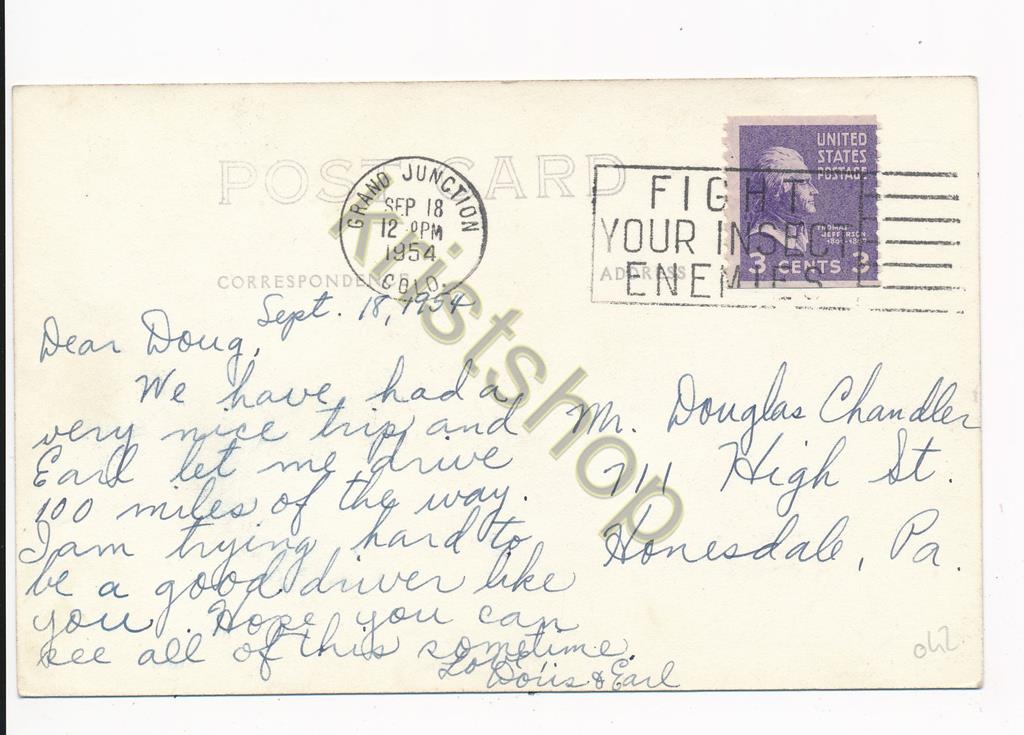 POST CARD
GRAND JUNCTION
SEP 18
12 PM
1954
COLO.
UNITED
STATES
POSTAGE
THOMAS
JEFFERSON
3 CENTS 3
FIGHT
YOUR INSECT
ENEMIES
CORRESPONDENCE
ADDRESS
Sept. 18, 1954
Dear Doug,
We have had a
very nice trip and
Earl let me drive
100 miles of the way.
I am trying hard to
be a good driver like
you. Hope you can
see all of this sometime.
Love,
Doris & Earl
Mr. Douglas Chandler
711 High St.
Honesdale, Pa.
kristshop